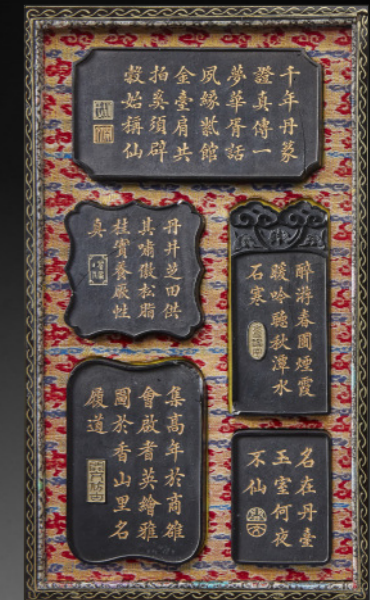 千年丹篆
證真傳一
夢華胥話
夙緣紫館
金臺肩共
拍奚須辟
穀始稱仙
丹井芝田供
其嘯傲松脂
桂實養厥性
真
醉游春圃煙霞
暖吟聽秋潭水
石寒
集高年於商雒
會啟耆英繪雅
圖於香山里名
履道
名在丹臺
玉室何夜
不仙